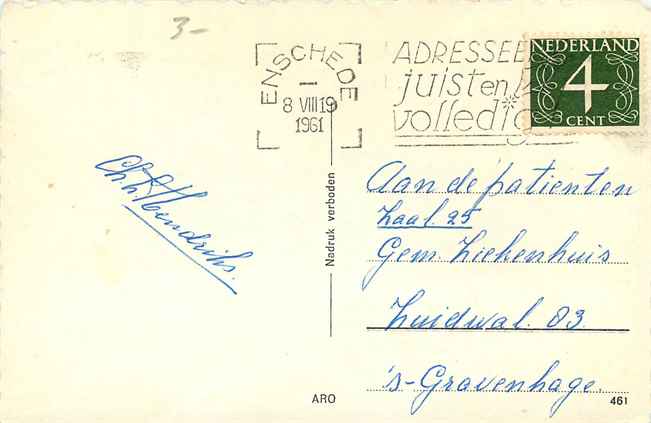 3-
ENSCHEDE
8 VIII 19
1961
ADRESSEE
juist en
volledig
NEDERLAND
4
CENT
Hendriks.
Nadruk verboden
Aan de patienten
Zaal 25
Gem. Ziekenhuis
Zuidwal. 83.
's-Gravenhage.
ARO
461